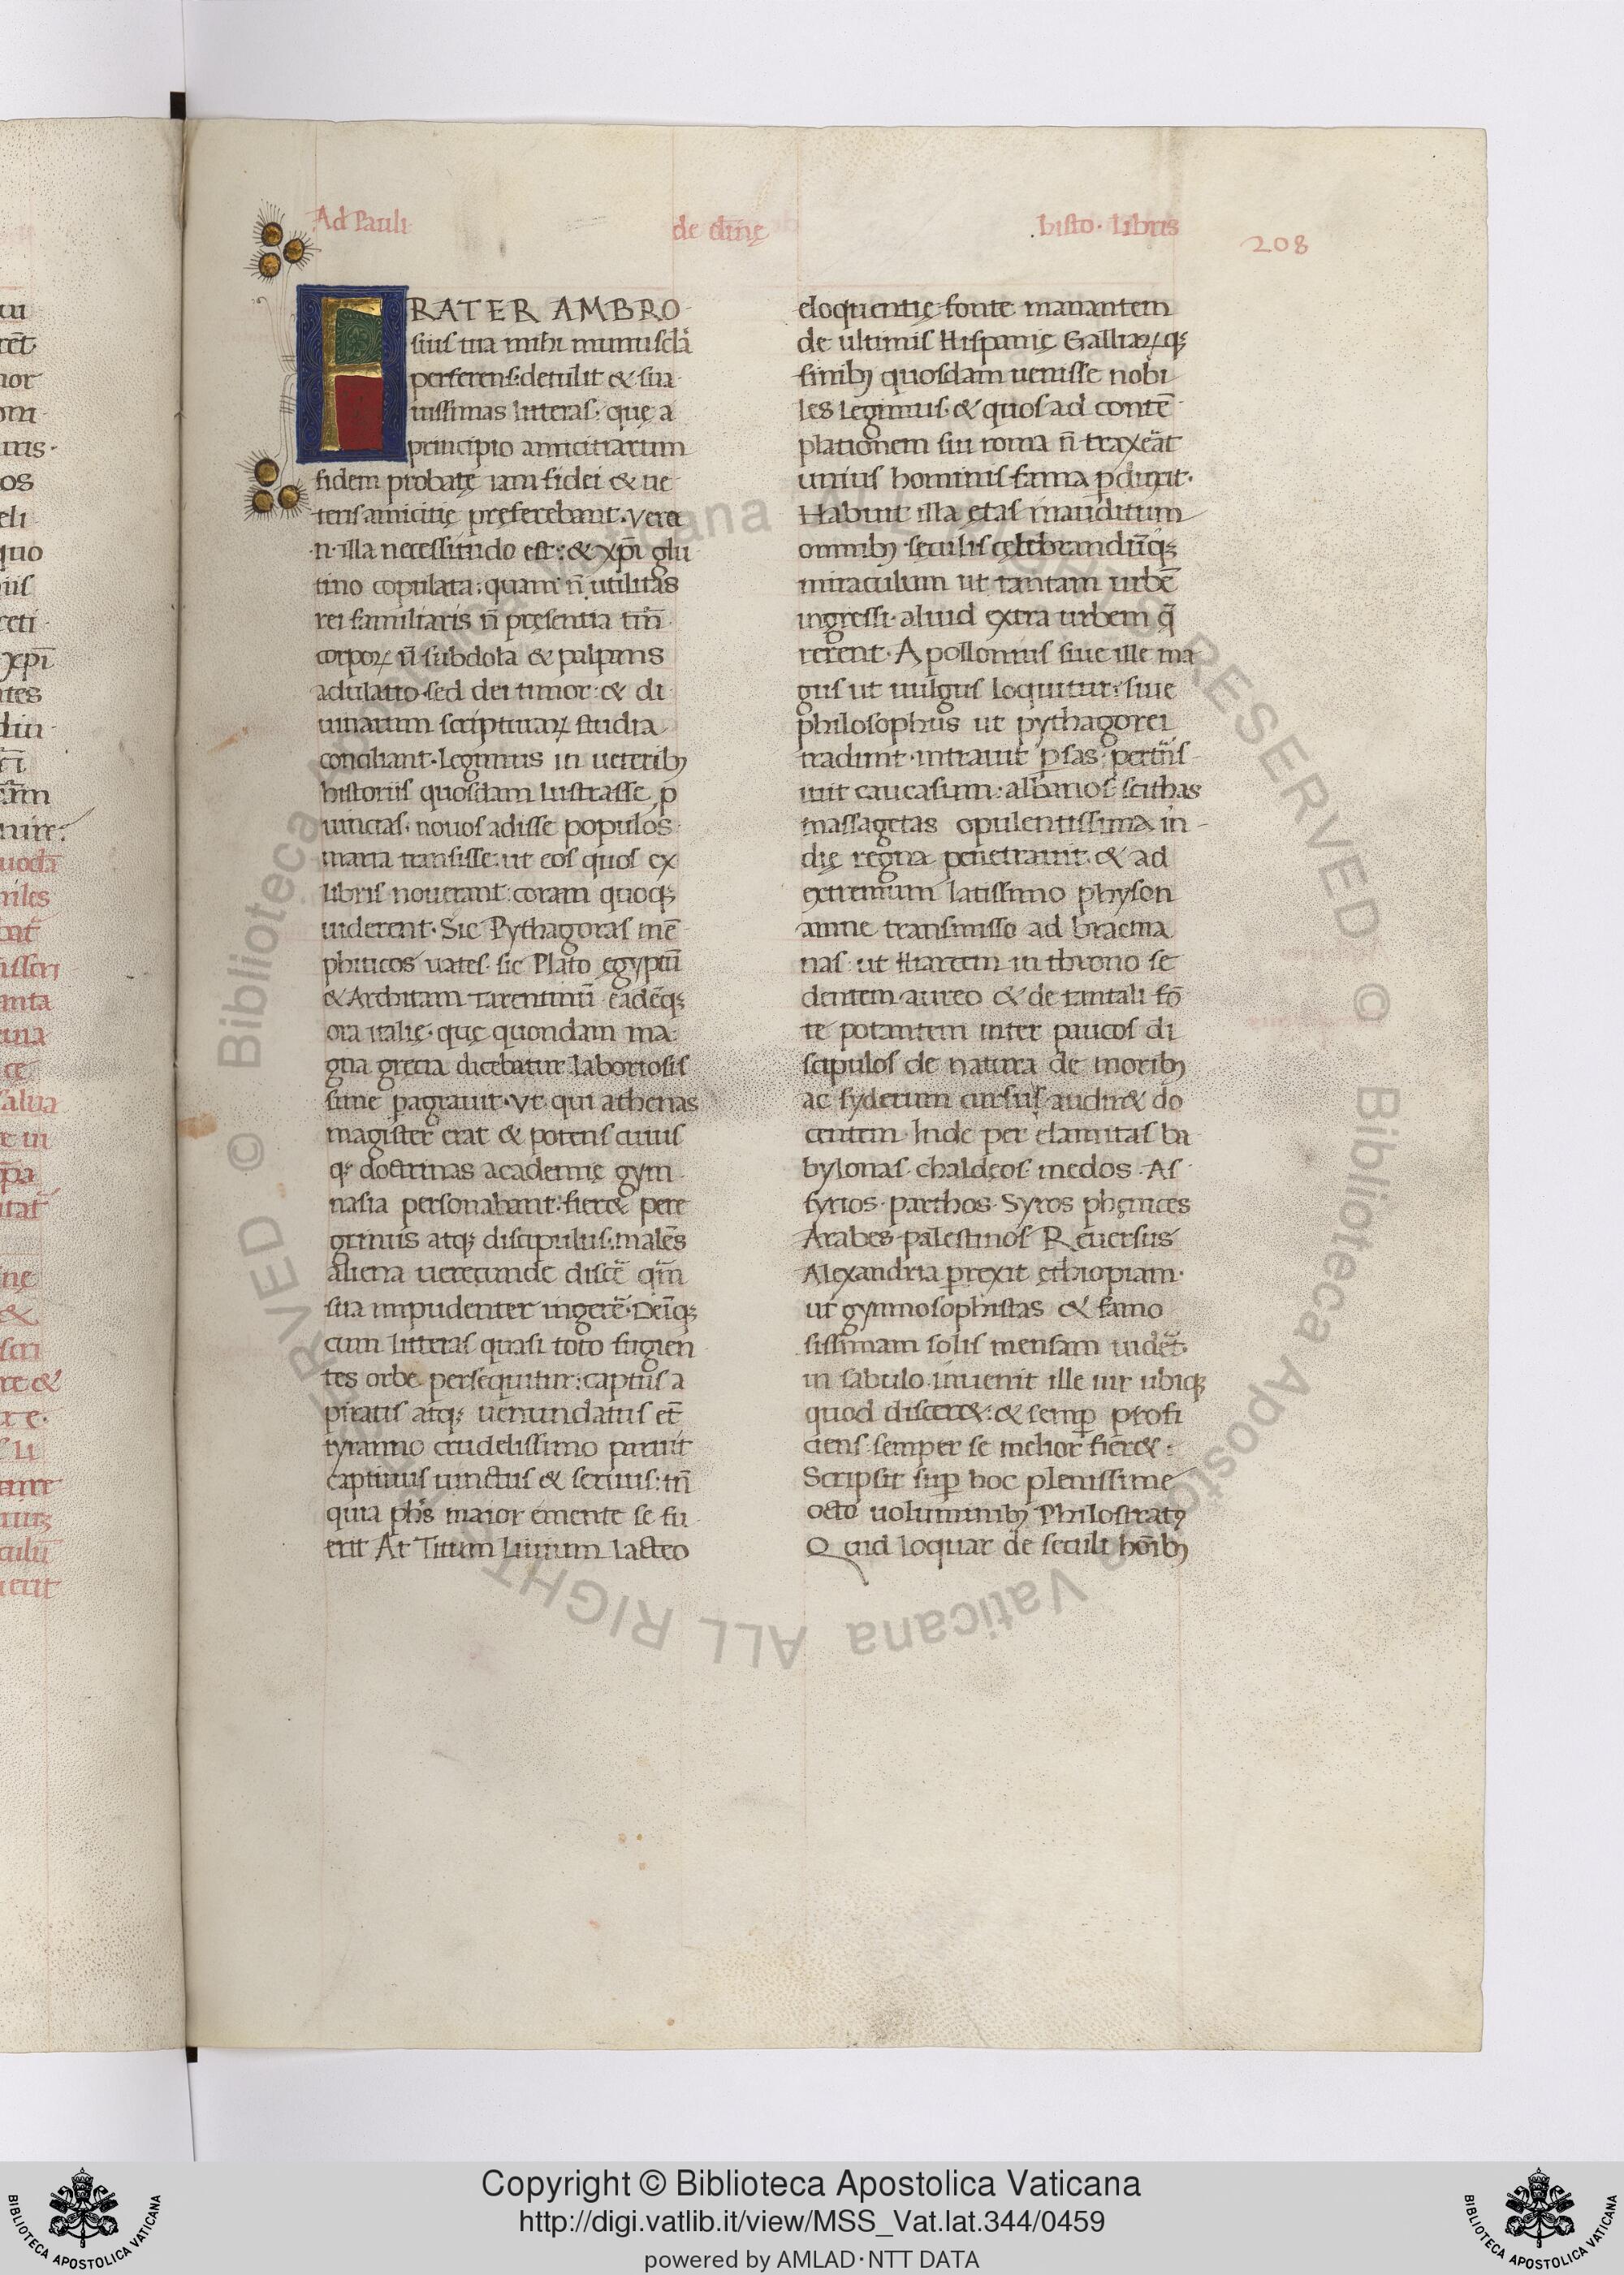 Ad Pauli de diuinę histo. libris 208
FRATER AMBRO
sius tua mihi munuscl̃a
perferens: detulit & sua
uissimas litteras: quę a
principio amicitiarum
fidem probatę iam fidei & ue
teris amicitię pręferebant. Vera
.n. illa necessitudo est: & xp̄i glu
tino copulata: quam n̄ utilitas
rei familiaris n̄ pręsentia tm̄
corpoꝝ n̄ subdola & palpans
adulatio. sed dei timor: & di
uinarum scripturaꝝ studia
conciliant. Legimus in ueterib;
historiis quosdam lustrasse ꝓ
uincias. nouos adisse populos
maria transisse: ut eos quos ex
libris nouerant: coram quoq;
uiderent. Sic Pythagoras mē
phiticos uates. sic Plato egyptū
& Architam tarentinū eādēq;
ora italię. quę quondam ma
gna grecia dicebatur: laboriosis
sime ꝑagrauit. Vt qui athenas
magister erat & potens cuius
q; doctrinas academię gym
nasia personabant: fieret pere
grinus atq; discipulus: malēs
aliena uerecunde discē qm̄
sua impudenter ingerē. Deīq;
cum litteras quasi toto fugien
tes orbe persequitur: captus a
piratis atq; uenundatus et̄
tyranno crudelissimo paruit
captiuus uinctus & seruus: tn̄
quia phs̄ maior emente se fu
erit At Titum Liuium lacteo
eloquentię fonte manantem
de ultimis Hispanię Galliaꝝq;
finib; quosdam uenisse nobi
les legimus. & quos ad contē
plationem sui roma n̄ traxeāt
unius hominis fama ꝑduxit.
Habuit illa ętas inauditum
omnib; seculis celebrandūq;
miraculum ut tantam urbē
ingressi. aliud extra urbem q̄
rerent. Apollonius siue ille ma
gus ut uulgus loquitur: siue
philosophus ut pythagorei
tradunt. intrauit ꝑsas: pertn̄s
iuit caucasum: albanos: scithas
massagetas opulentissima in
dię regna penetrauit. & ad
extremum latissimo physon
amne transmisso ad bracma
nas: ut Hiarcem in throno se
dentem aureo & de tantali fō
te potantem inter paucos di
scipulos de natura de morib;
ac syderum cursus audiret do
centem. Inde per elamitas ba
bylonas. chaldęos. medos. As
syrios. parthos. Syros phęnices
Arabes. palestinos Reuersus
Alexandria prexit ęthiopiam.
ut gymnosophistas & famo
sissimam solis mensam uidēt.
in sabulo. inuenit ille uir ubiq;
quod disceret: & semꝑ profi
ciens. semper se melior fieret.
Scripsit suꝑ hoc plenissime
octo uoluminib; Philostratꝰ
Quid loquar de seculi hōib;
Copyright © Biblioteca Apostolica Vaticana
http://digi.vatlib.it/view/MSS_Vat.lat.344/0459
powered by AMLAD·NTT DATA